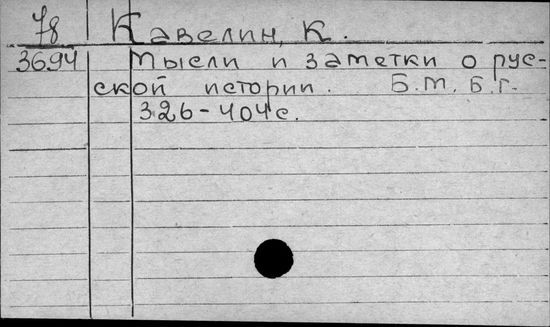 78 Кавелин, К.
3694 Мысли и заметки о рус-
ской истории. Б.м. Б.г.
326-404с.